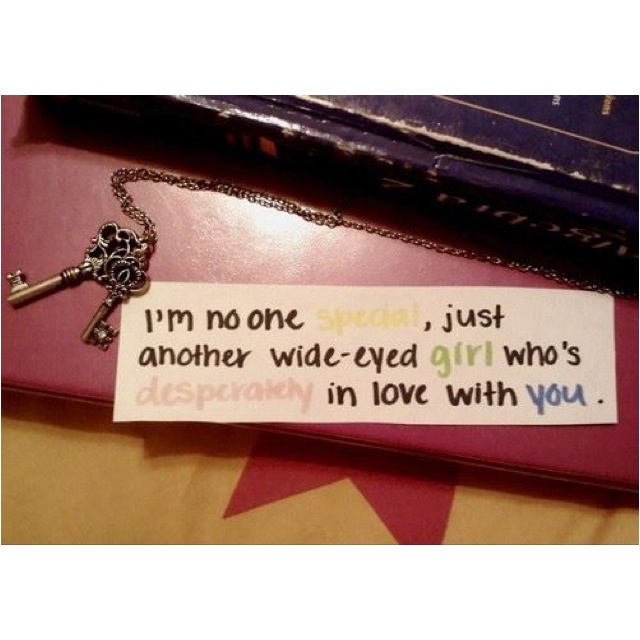 I'm no one special, just
another wide-eyed girl who's
desperately in love with you.
Algebra 2